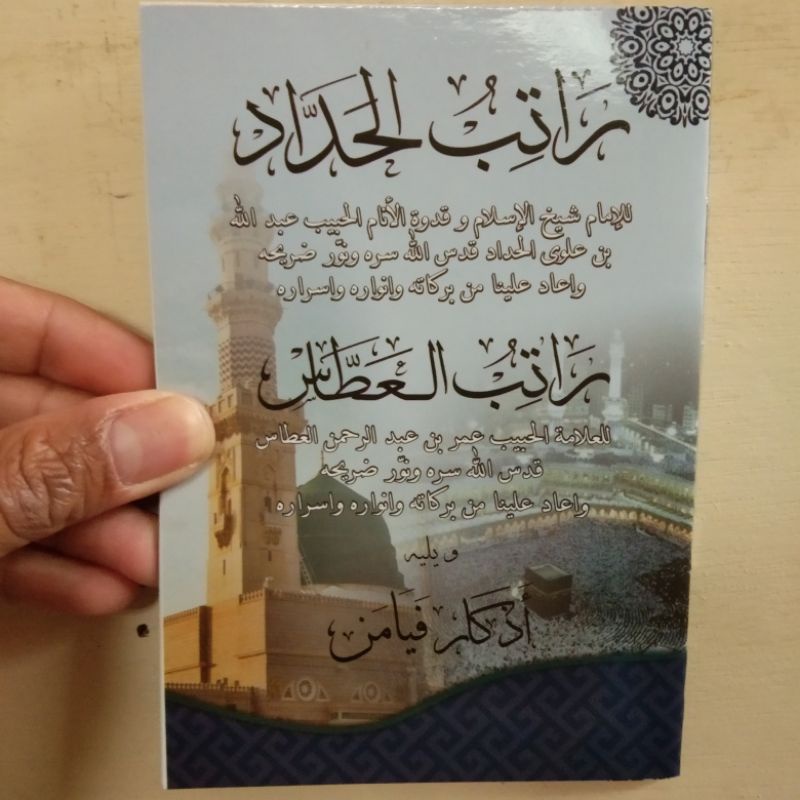 رَاتِبُ الحَدَّاد
للإمام شيخ الإسلام و قدوة الأنام الحبيب عبد الله
بن علوى الحداد قدس الله سره ونوّر ضريحه
واعاد علينا من بركاته وانواره واسراره
رَاتِبُ العَطَّاسْ
للعلامة الحبيب عمر بن عبد الرحمن العطاس
قدس الله سره ونوّر ضريحه
واعاد علينا من بركاته وانواره واسراره
و يليه
أذكار فَيَامَن